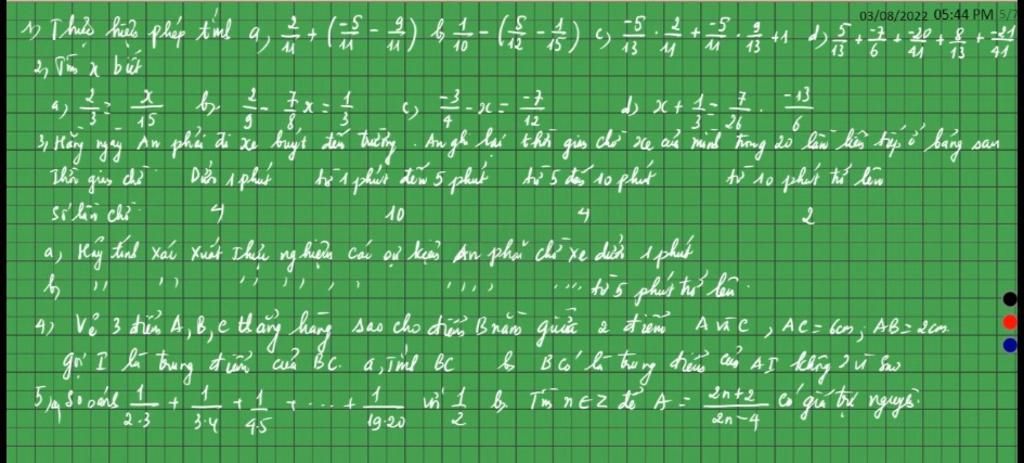 03/08/2022 05:44 PM 5/7
1, Thực hiện phép tính a, 2/11 + (-5/11 - 9/11) b, 1/10 - (5/12 - 1/15) c, -5/13 . 2/11 + -5/11 . 9/13 + 1 d, 5/13 + -7/6 + -20/41 + 8/13 + -21/41
2, Tìm x biết
a, 2/3 = x/15 b, 2/9 - 7/8 x = 1/3 c, -3/4 - x = -7/12 d, x + 1/3 = 7/26 . -13/6
3, Hằng ngày An phải đi xe buýt đến trường. An ghi lại thời gian chờ xe của mình trong 20 lần liên tiếp ở bảng sau
Thời gian chờ Dưới 1 phút từ 1 phút đến 5 phút từ 5 đến 10 phút từ 10 phút trở lên
Số lần chờ 4 10 4 2
a, Hãy tính xác xuất thực nghiệm các sự kiện An phải chờ xe dưới 1 phút
b, '' '' '' '' từ 5 phút trở lên.
4, Vẽ 3 điểm A, B, C thẳng hàng sao cho điểm B nằm giữa 2 điểm A và C, AC = 6cm, AB = 2cm.
gọi I là trung điểm của BC. a, Tính BC b, B có là trung điểm của AI không? vì sao
5, a, So sánh 1/2.3 + 1/3.4 + 1/4.5 + ... + 1/19.20 với 1/2 b, Tìm n ∈ Z để A = 2n+2/2n-4 có giá trị nguyên.